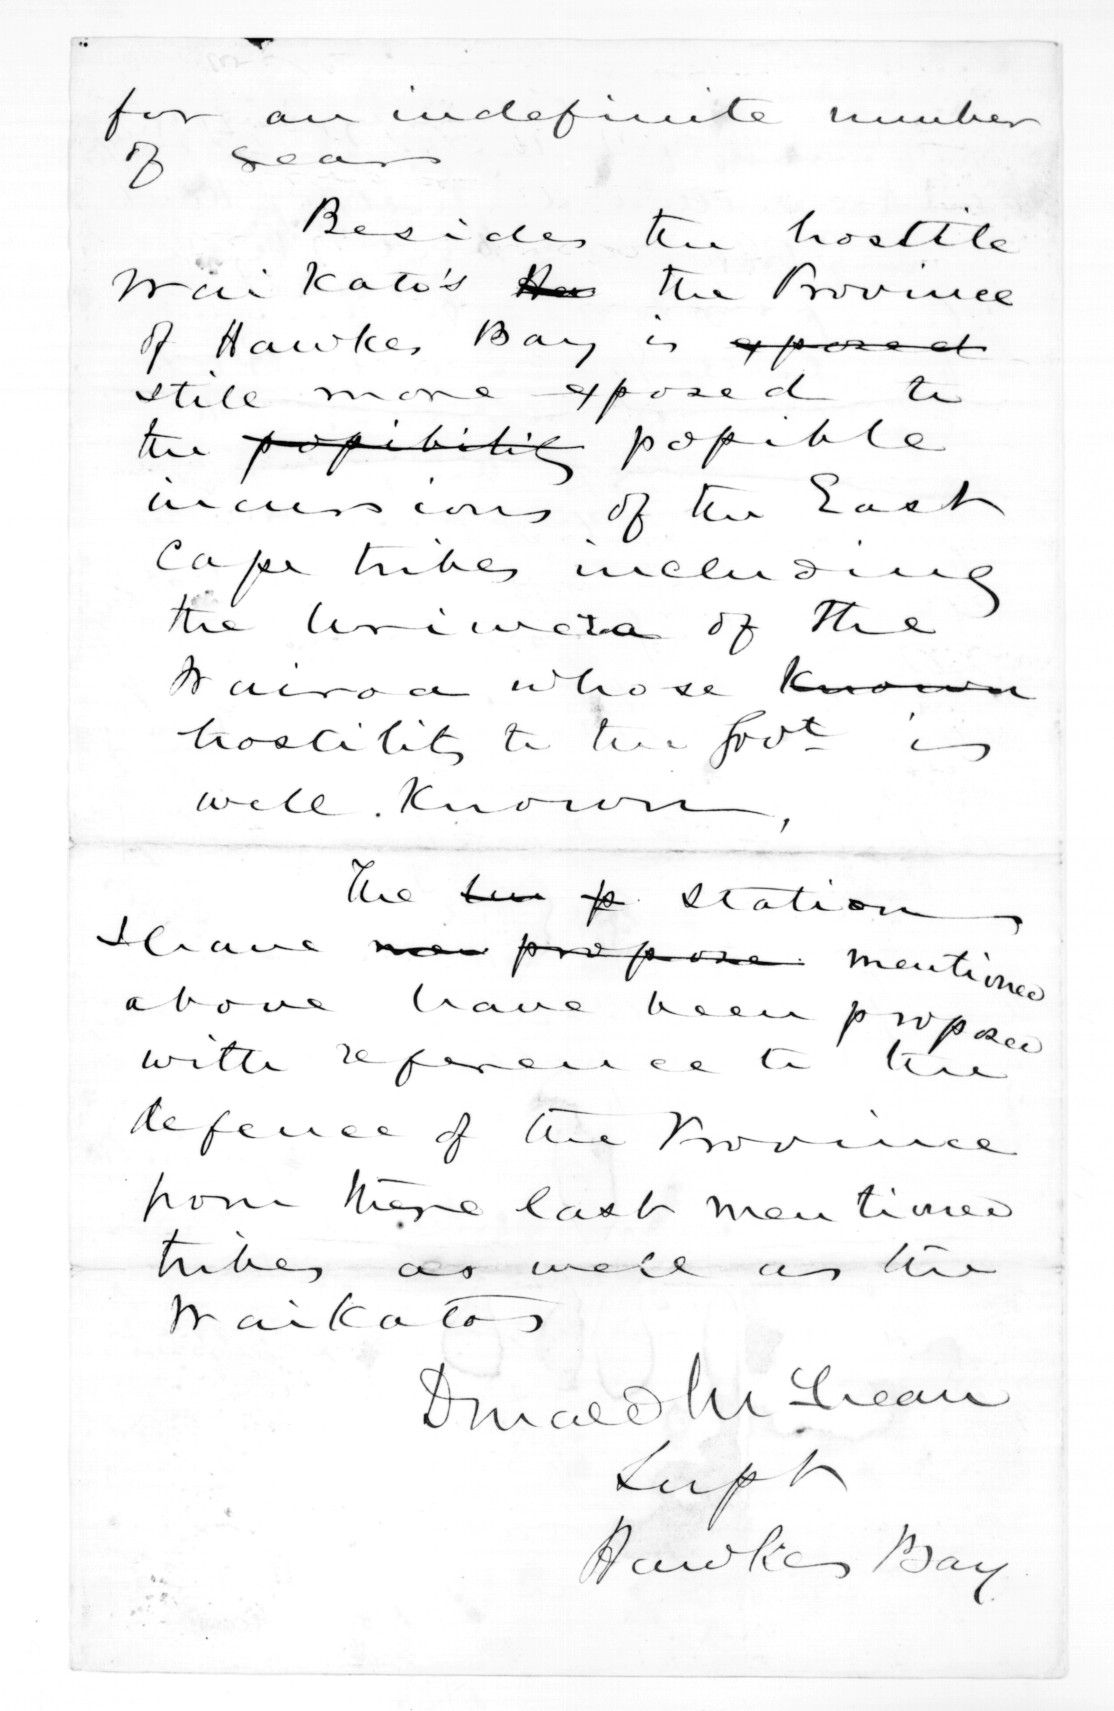 for an indefinite number
of years
Besides the hostile
Waikato's the Province
of Hawkes Bay is exposed
still more exposed to
the possibility possible
incursions of the East
Cape tribes including
the Uriwera of the
Wairoa whose known
hostility to the Govt is
well known,
The p stations
I have now propose mentioned
above have been proposed
with reference to the
defence of the Province
from these last mentioned
tribes as well as the
Waikatos
Donald McLean
Supt
Hawkes Bay